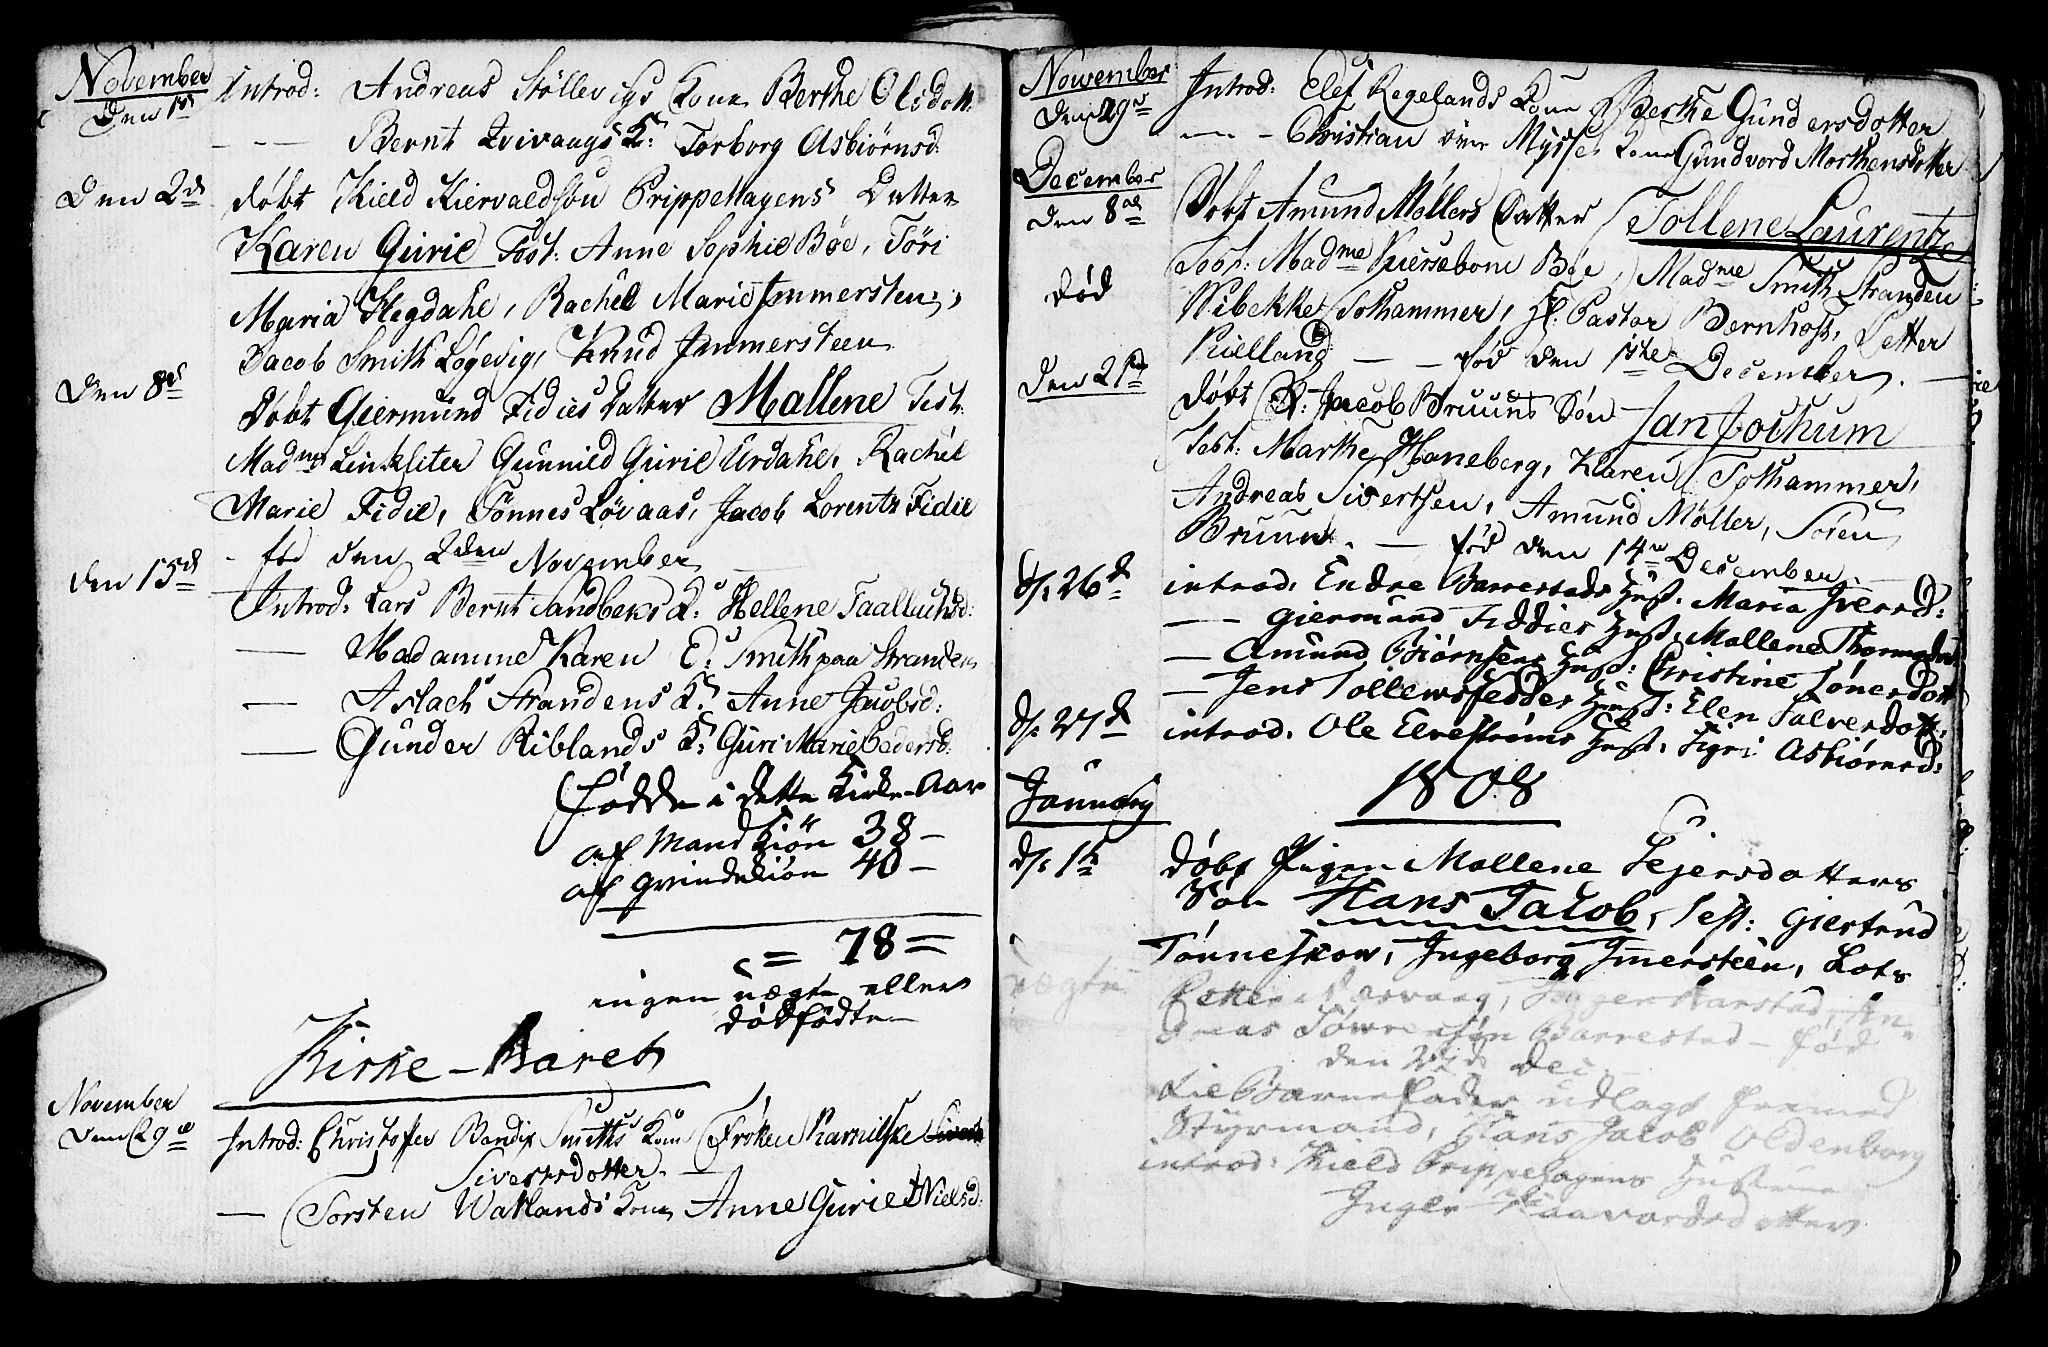 November
Den 1st Introd: Andreas Stöllevigs Kone Berthe Olsdott:
- - - Bernt Qvivaags K: Torborg Asbiörnsd:
Den 2de döbt Kield Kiervaldsön Prippehagens Datter
Karen Gurie Test: Anne Sophie Böe, Töri
Maria Hegdahl, Rachel Marie Immersteen,
Jacob Smith Løgevig, Knud Immersteen
Den 8de Döbt Giermund Fidies Datter Mallene Test:
Madme Linkliter Gunnild Gurie Urdahl, Rachel
Marie Fidie, Tönnes Lövaas, Jacob Lorentz Fidie
- föd den 2den November
Den 15de Introd: Lars Bernt Sandbeks K: Hellene Taallachsd:
— Madamme Karen E: Smith paa Stranden
— Aslach Strandens K: Anne Jacobsd:
— Gunder Riblands K: Guri Marie Pedersd:
Fødde i dette Kirke-Aar
af Mandkiön 38 -
af Qvindekiön 40 -
= 78 =
ingen uægte eller
dödfödte
Kirke-Aaret
November
Den 29de Introd: Christofer Bendix Smiths Kone Fröken Karnilske
Sivertsdotter
— Torsten Watlands Kone Anne Gurie Nielsd:
Nowember
Den 29de Introd: Elef Regelands Kone Berthe Gundersdotter
— - Christian över Mysse Kone Gundvord Morthensdotter
December
Den 8de Döbt Amund Möllers Datter Tollene Laurentze
Test: Madme Kiersebom Böe, Madme Smith Stranden
död Wibekke Solhammer, Hr: Pastor Bernhoft, Petter
Kielland — — föd den 1ste December. —
Den 21de döbt Jacob Bruuns Sön Jan Jochum
Test: Marthe Haneberg, Karen Solhammer,
Andreas Sivertsen, Amund Möller, Sören
Bruun. — föd den 14de December.
d: 26de introd. Endre Barrestads Hust. Maria Iversd:
— — Giermund Fiddies Hust. Mallene Thomasdot
— Amund Biörnsens Hust: Christine Tönesdott
— Jens Tollewsfedder Hust: Elen Salvesdott:
d: 27de introd. Ole Elvestrøms Hust. Sigri Asbiörnsd:
1808
Januarij
d: 1te döbt Pigen Mallene Sejersdotters
Sön Hans Jacob, Test: Giertrud
Tönneskow, Ingeborg Imersteen, Lots
uægte Petter Næsvaag, Inger Barstad, An-
dreas Barrestad - föd
den 27de Dec
til Barnefader udlagt fremmed
Styrmand, Hans Jacob Oldenborg
introd: Kield Prippehagens Hustrue
Inger Haavordsdotter